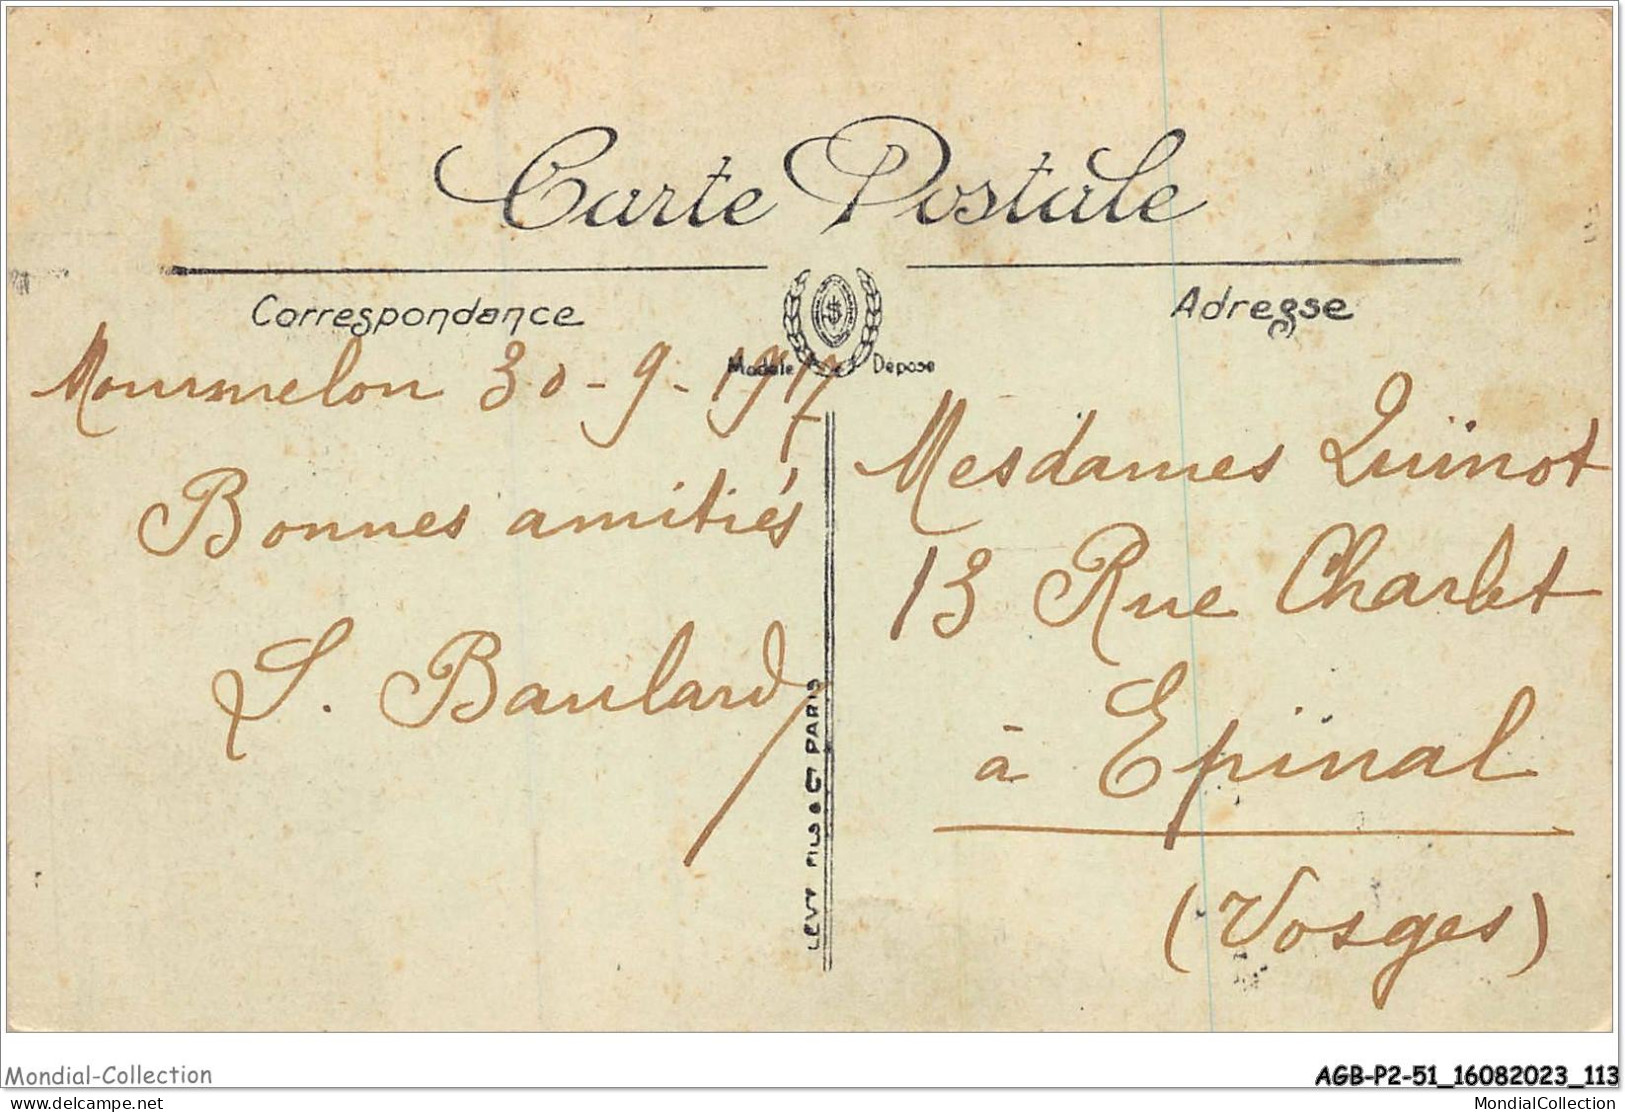 Carte Postale
Correspondance
Adresse
Modèle Déposé
Mourmelon 30-9-1917
Bonnes amitiés
S. Baulard
LEVY FILS & Cie PARIS
Mesdames Quinot
13 Rue Charlet
à Epinal
(Vosges)
Mondial-Collection
AGB-P2-51_16082023_113
delcampe.net
MondialCollection